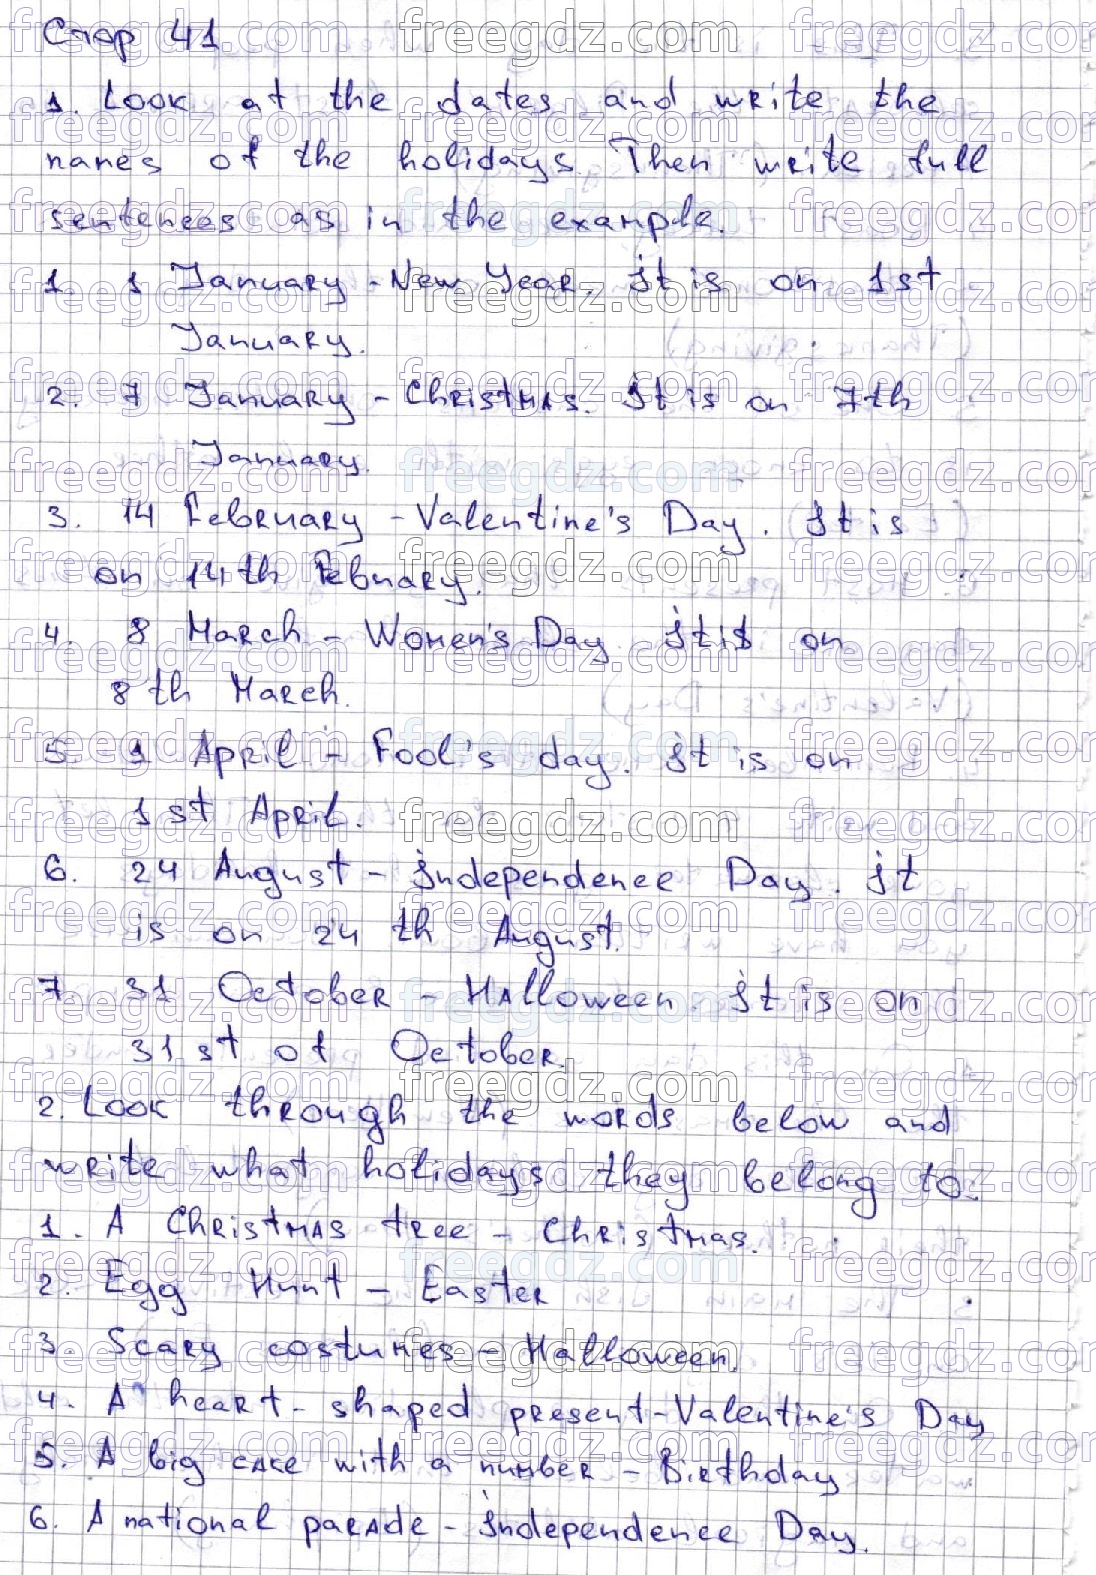 Стор 41
1. Look at the dates and write the
names of the holidays. Then write full
sentences as in the example.
1. 1 January - New Year. It is on 1st
January.
2. 7 January - Christmas. It is on 7th
January.
3. 14 February - Valentine's Day. It is
on 14th Febuary.
4. 8 March - Women's Day. It is on
8th March.
5. 1 April - Fool's day. It is on
1st April.
6. 24 August - Independence Day. It
is on 24th August.
7. 31 October - Halloween. It is on
31st of October.
2. Look through the words below and
write what holidays they belong to.
1. A Christmas tree - Christmas.
2. Egg Hunt - Easter
3. Scary costumes - Halloween.
4. A heart-shaped present - Valentine's Day
5. A big cake with a number - Birthday
6. A national parade - Independence Day.
freegdz.com